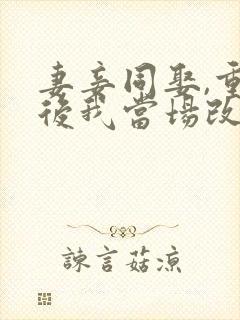 妻妾同娶,重
後我當場改
諫言菇涼